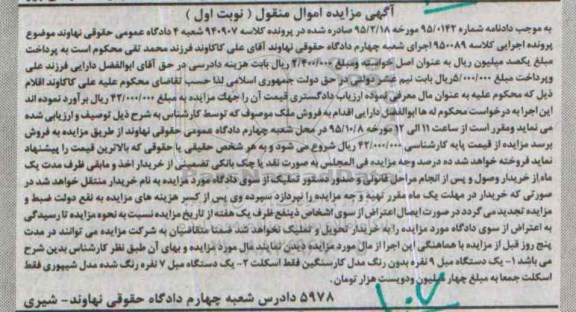 آگهی مزایده اموال منقول ( نوبت اول )
به موجب دادنامه شماره ۹۵/۰۱۴۲ مورخه ۹۵/۲/۱۸ صادره شده در پرونده کلاسه ۹۴۰۹۰۷ شعبه ۴ دادگاه عمومی حقوقی نهاوند موضوع
پرونده اجرایی کلاسه ۹۵۰۰۸۹ اجرای شعبه چهارم دادگاه حقوقی نهاوند آقای علی کاکاوند فرزند محمد تقی محکوم است به پرداخت
مبلغ یکصد میلیون ریال به عنوان اصل خواسته ومبلغ ۲/۴۰۰/۰۰۰ ریال بابت هزینه دادرسی در حق آقای ابوالفضل دارایی فرزند علی
وپرداخت مبلغ ۵/۰۰۰/۰۰۰ریال بابت نیم عشر دولتی در حق دولت جمهوری اسلامی لذا حسب تقاضای محکوم علیه علی کاکاوند اقلام
ذیل که محکوم علیه به عنوان مال معرفی نموده ارزیاب دادگستری قیمت آن را جهت مزایده به مبلغ ۴۲/۰۰۰/۰۰۰ ریال برآورد نموده اند
این اجرا به درخواست محکوم له ها ابوالفضل دارایی اقدام به فروش ملک موصوف که توسط کارشناس به شرح ذیل توصیف و ارزیابی شده
می نماید ومقرر است از ساعت ۱۱ الی ۱۲ مورخه ۹۵/۱۰/۸ در محل شعبه چهارم دادگاه عمومی حقوقی نهاوند از طریق مزایده به فروش
برسد مزایده از قیمت پایه کارشناسی ۴۲/۰۰۰/۰۰۰ ریال شروع می شود و به هر شخص حقیقی یا حقوقی که بالاترین قیمت را پیشنهاد
نماید فروخته خواهد شد ده درصد وجه مزایده فی المجلس به صورت نقد یا چک بانکی تضمینی از خریدار اخذ و مابقی ظرف مدت یک
ماه از خریدار وصول و پس از انجام مراحل قانونی و صدور دستور تملیک از سوی دادگاه مورد مزایده به نام خریدار منتقل خواهد شد در
صورتی که خریدار در مهلت یک ماه مقرر تهیه و چه مزایده را نپردازد سپرده وی پس از کسر هزینه های مزایده به نفع دولت ضبط و
مزایده تجدید می گردد در صورت ایصال اعتراض از سوی اشخاص ذینفع ظرف یک هفته از تاریخ مزایده نسبت به نحوه مزایده تا رسیدگی
به اعتراض از سوی دادگاه مورد مزایده را به خریدار تحویل و تملیک نخواهد شد ضمنا متقاضیان به شرکت مزایده می توانند در مدت
پنج روز قبل از مزایده با هماهنگی این اجرا از مال مورد مزایده دیدن نمایند مال مورد مزایده و بهای آن طبق نظر کارشناس بدین شرح
می باشد ۱- یک دستگاه مبل ۹ نفره بدون رنگ مدل کارسنگین فقط اسکلت ۲- یک دستگاه مبل ۷ نفره رنگ شده مدل شیپوری فقط
اسکلت جمعا به مبلغ چهار میلیون ودویست هزار تومان.
۵۹۷۸ دادرس شعبه چهارم دادگاه حقوقی نهاوند- شیری